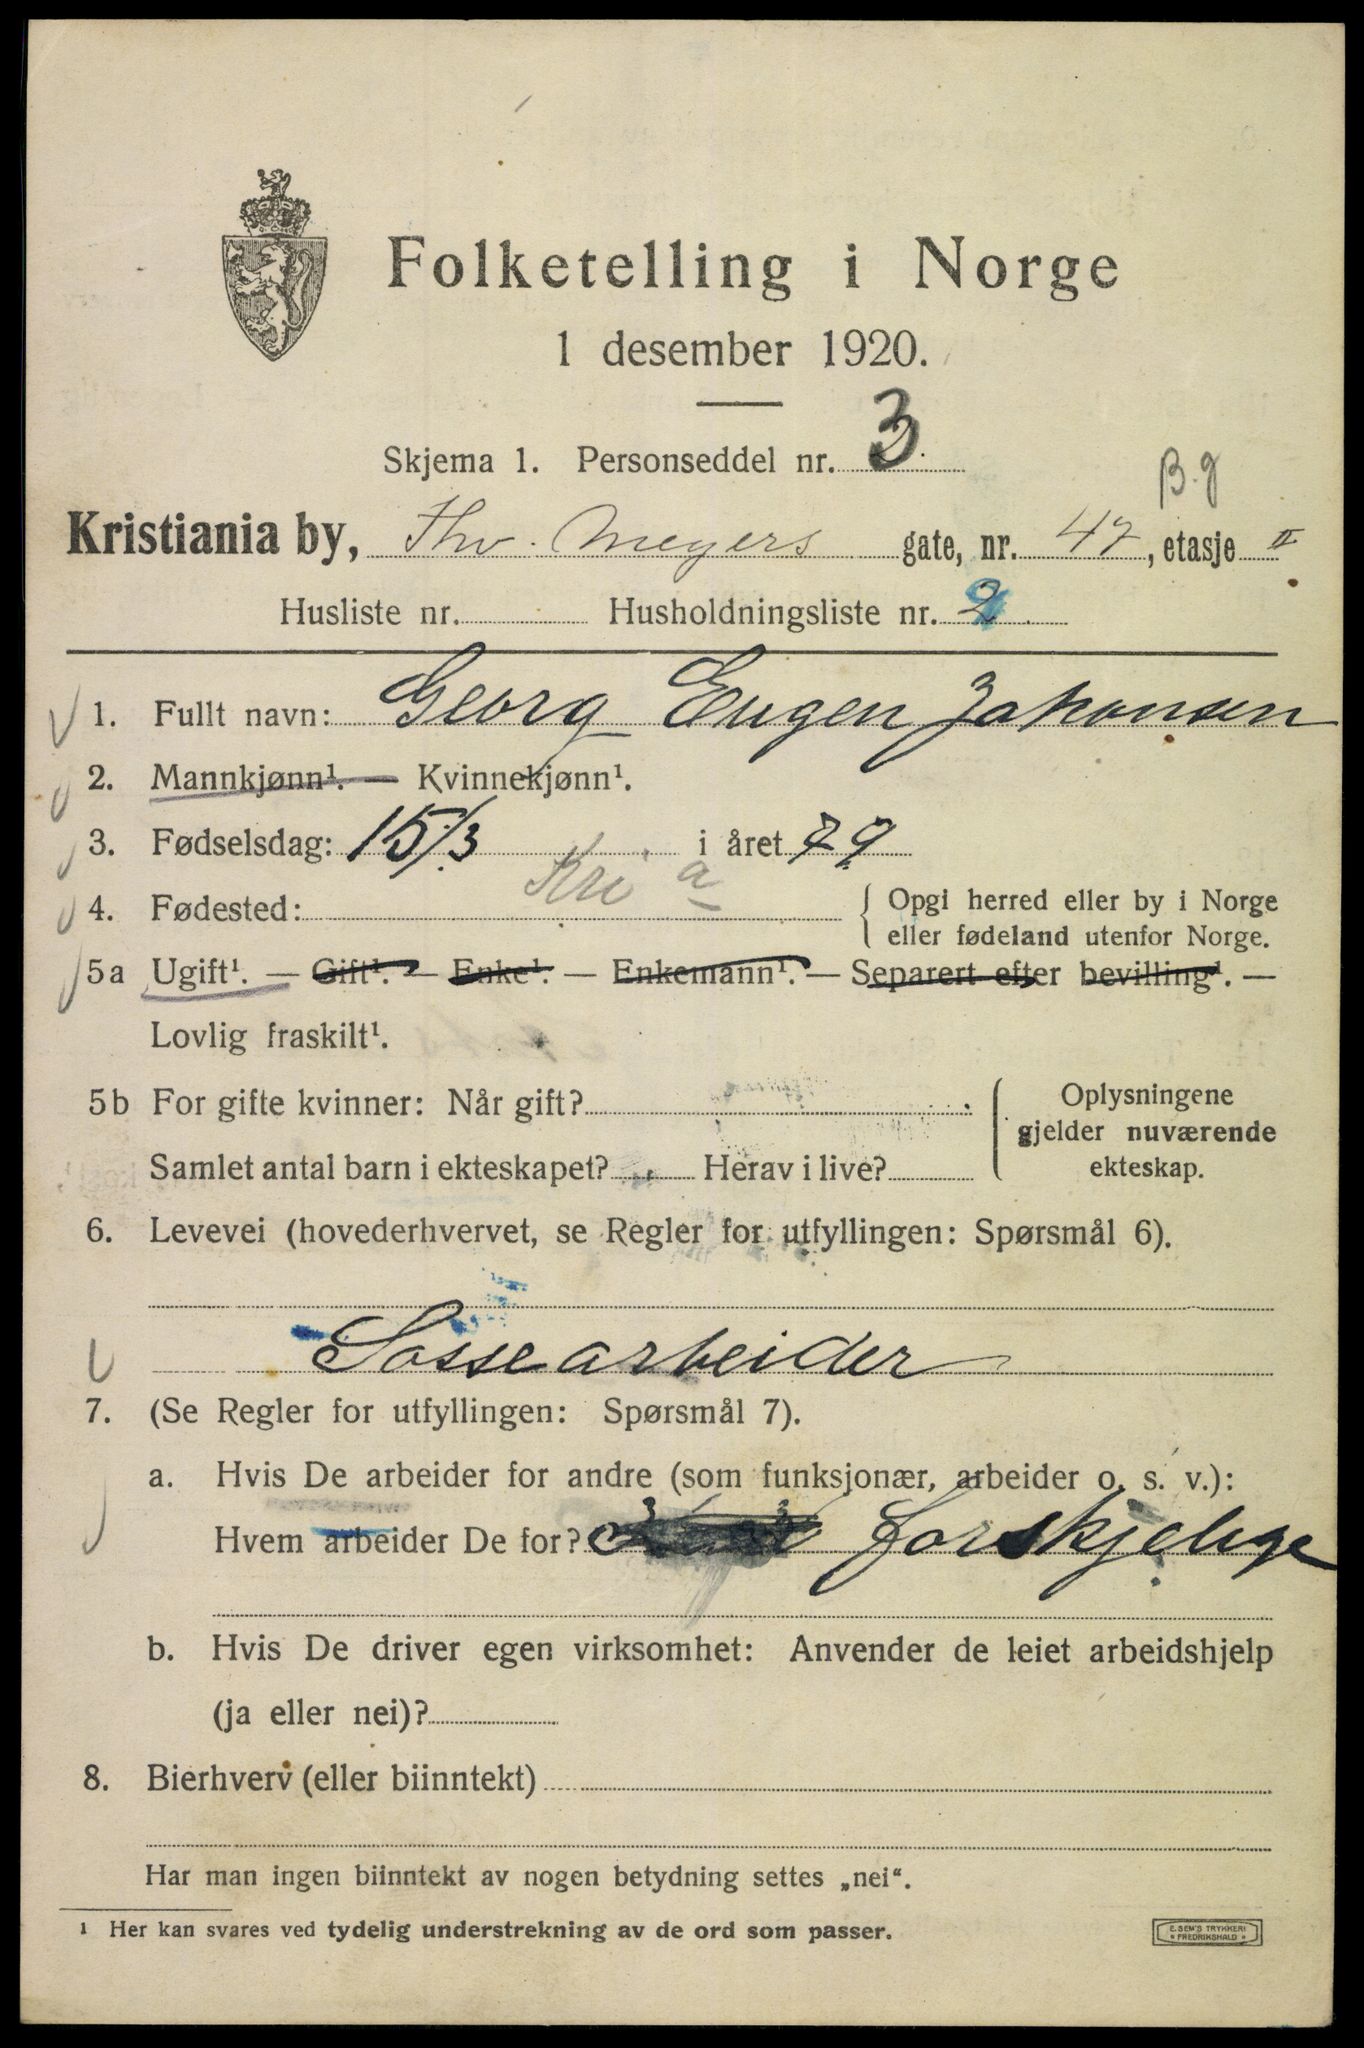 Folketelling i Norge
1 desember 1920.
Skjema 1. Personseddel nr. 3
B.g
Kristiania by, Thv. Meyers gate, nr. 47, etasje II
Husliste nr. Husholdningsliste nr. 2
1. Fullt navn: Georg Eugen Johansen
2. Mannkjønn¹. — Kvinnekjønn¹.
3. Fødselsdag: 15/3 i året 79
4. Fødested: Kri a { Opgi herred eller by i Norge
eller fødeland utenfor Norge.
5a Ugift¹. — Gift¹. — Enke¹. — Enkemann¹. — Separert efter bevilling¹. —
Lovlig fraskilt¹.
5b For gifte kvinner: Når gift?
Samlet antal barn i ekteskapet? Herav i live?
Oplysningene
gjelder nuværende
ekteskap.
6. Levevei (hovederhvervet, se Regler for utfyllingen: Spørsmål 6).
Lossearbeider
7. (Se Regler for utfyllingen: Spørsmål 7).
a. Hvis De arbeider for andre (som funksjonær, arbeider o. s. v.):
Hvem arbeider De for? forskjelige
b. Hvis De driver egen virksomhet: Anvender de leiet arbeidshjelp
(ja eller nei)?
8. Bierhverv (eller biinntekt)
Har man ingen biinntekt av nogen betydning settes „nei“.
¹ Her kan svares ved tydelig understrekning av de ord som passer.
E. SEM'S TRYKKERI
FREDRIKSHALD